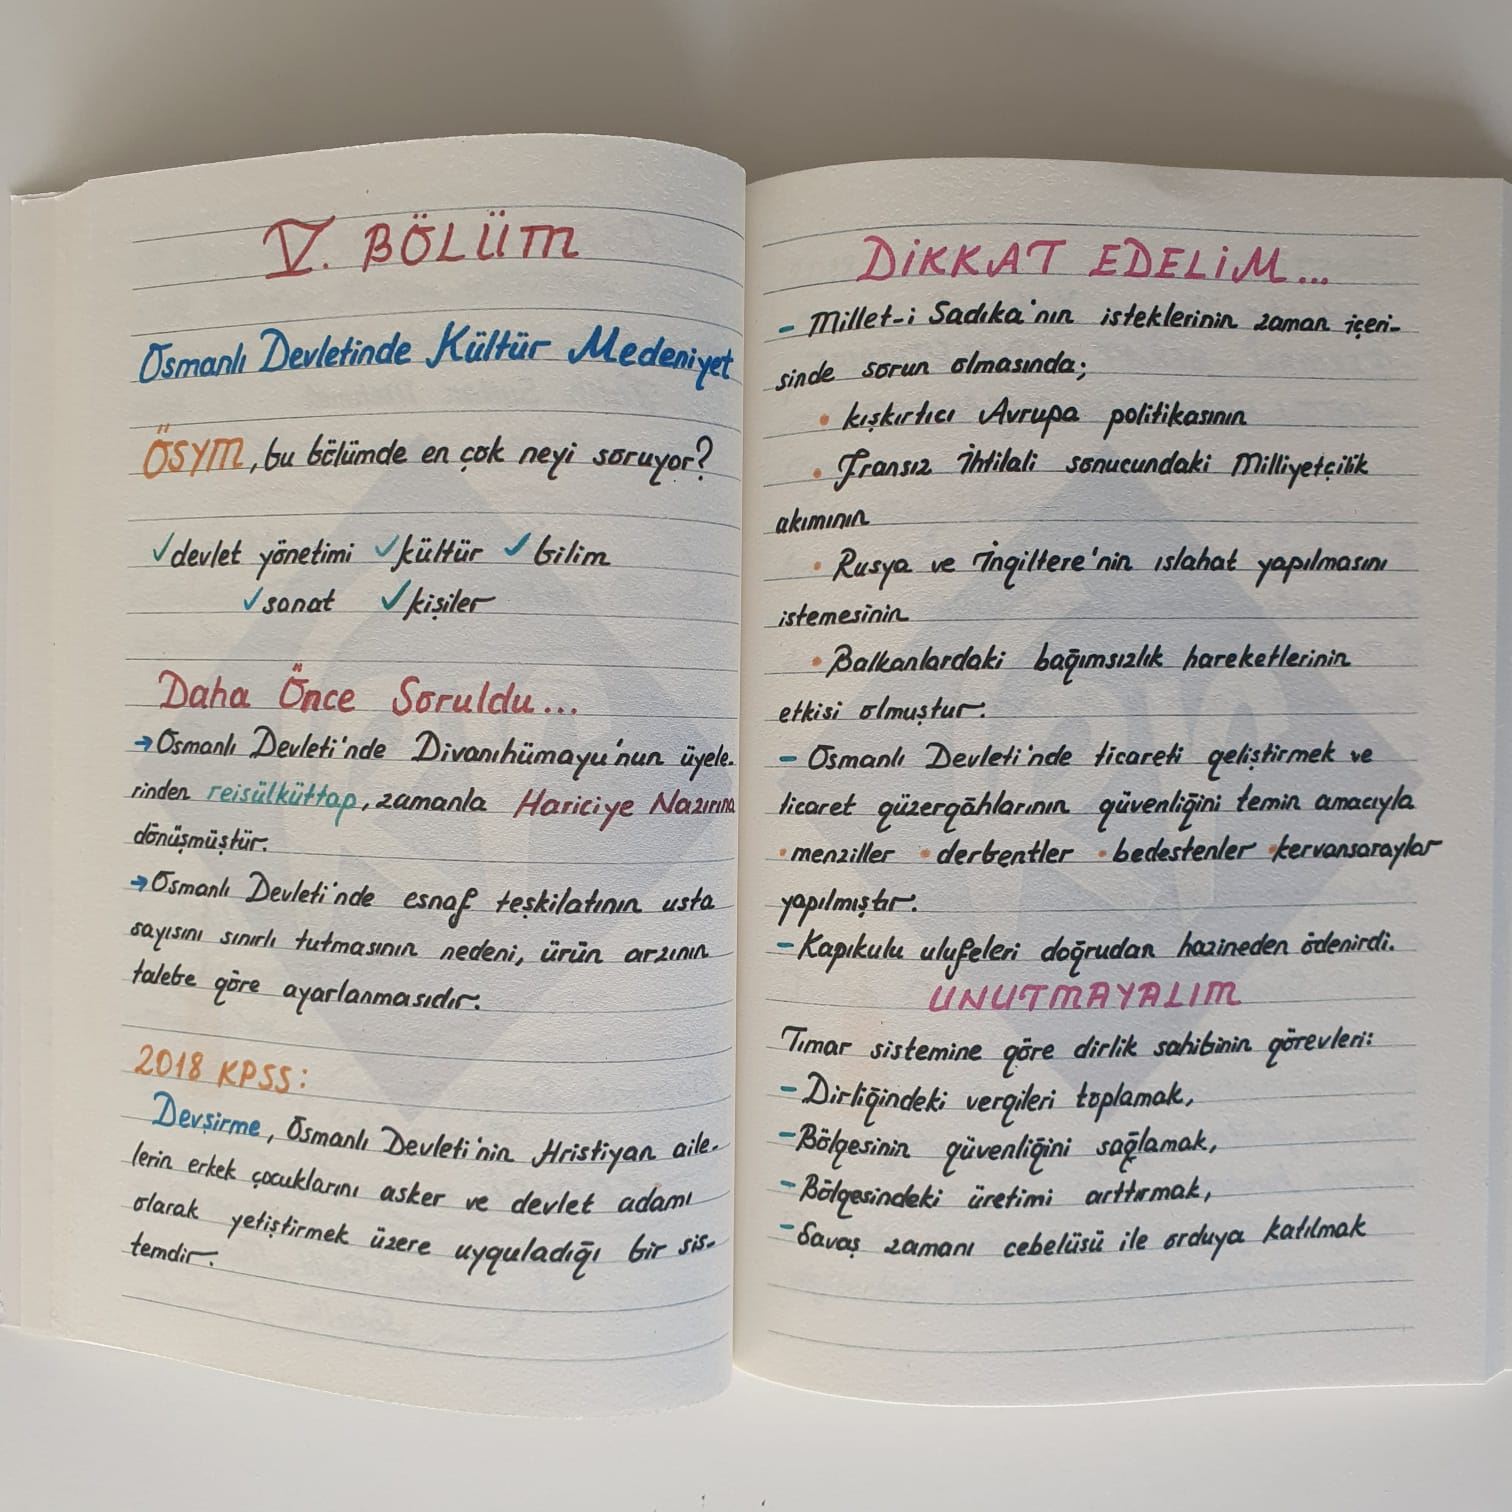 V. BÖLÜM
Osmanlı Devletinde Kültür Medeniyet
ÖSYM, bu bölümde en çok neyi soruyor?
✓devlet yönetimi ✓kültür ✓bilim
✓sanat ✓kişiler
Daha Önce Soruldu...
→Osmanlı Devleti'nde Divanıhümayu'nun üyele-
rinden reisülküttap, zamanla Hariciye Nazırına
dönüşmüştür.
→Osmanlı Devleti'nde esnaf teşkilatının usta
sayısını sınırlı tutmasının nedeni, ürün arzının
talebe göre ayarlanmasıdır.
2018 KPSS:
Devşirme, Osmanlı Devleti'nin Hristiyan aile-
lerin erkek çocuklarını asker ve devlet adamı
olarak yetiştirmek üzere uyguladığı bir sis-
temdir.
DİKKAT EDELİM...
- Millet-i Sadıka'nın isteklerinin zaman içeri-
sinde sorun olmasında;
• kışkırtıcı Avrupa politikasının
• Fransız İhtilali sonucundaki Milliyetçilik
akımının
• Rusya ve İngiltere'nin ıslahat yapılmasını
istemesinin
• Balkanlardaki bağımsızlık hareketlerinin
etkisi olmuştur.
- Osmanlı Devleti'nde ticareti geliştirmek ve
ticaret güzergâhlarının güvenliğini temin amacıyla
• menziller • derbentler • bedestenler • kervansaraylar
yapılmıştır.
- Kapıkulu ulufeleri doğrudan hazineden ödenirdi.
UNUTMAYALIM
Tımar sistemine göre dirlik sahibinin görevleri:
- Dirliğindeki vergileri toplamak,
- Bölgesinin güvenliğini sağlamak,
- Bölgesindeki üretimi arttırmak,
- Savaş zamanı cebelüsü ile orduya katılmak